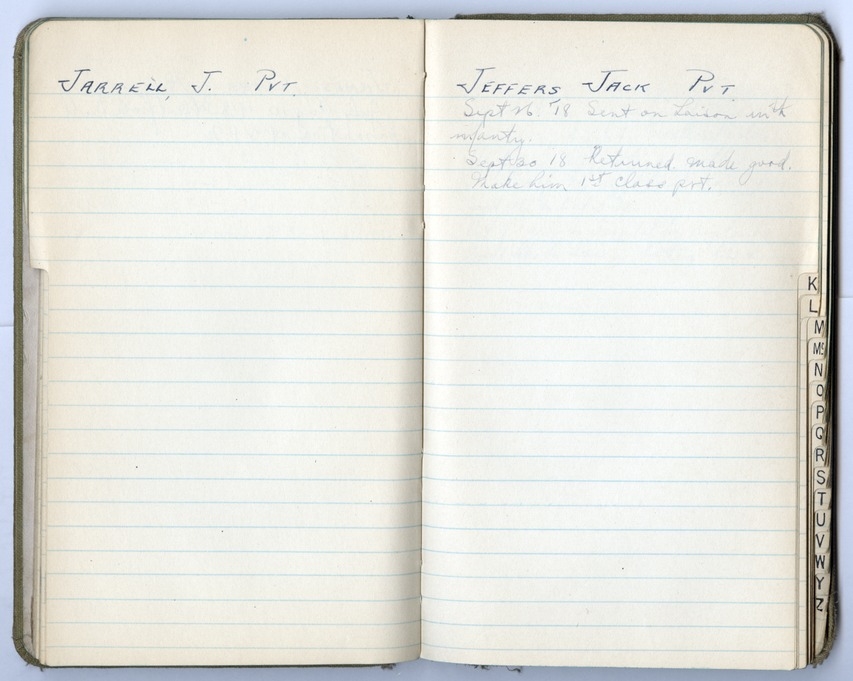 JARRELL, J. PVT.
JEFFERS JACK PVT.
Sept 26. '18 Sent on Laison with
infantry.
Sept 30 18 Returned made good.
Make him 1st Class pvt.
K
L
M
Mc
N
O
P
Q
R
S
T
U
V
W
Y
Z